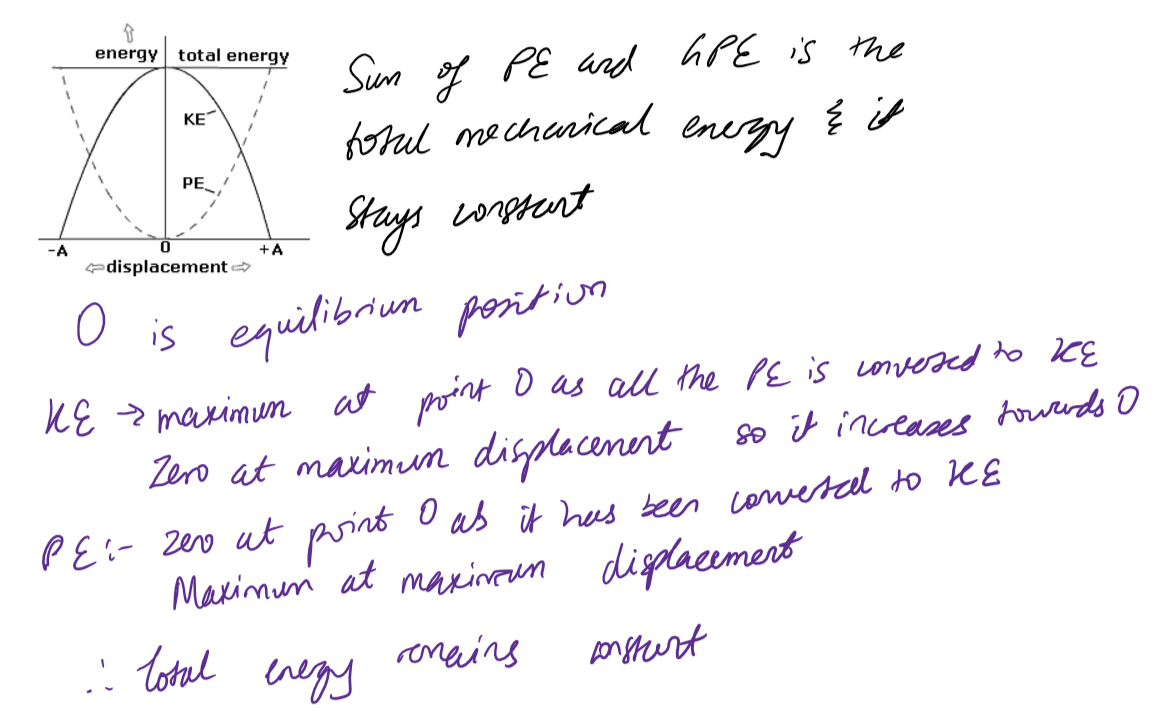 energy total energy
KE
PE
-A 0 +A
displacement
Sum of PE and GPE is the
total mechanical energy & it
stays constant
O is equilibrium position
KE → maximum at point O as all the PE is converted to KE
Zero at maximum displacement so it increases towards O
PE:- zero at point O as it has been converted to KE
Maximum at maximum displacement
∴ total energy remains constant